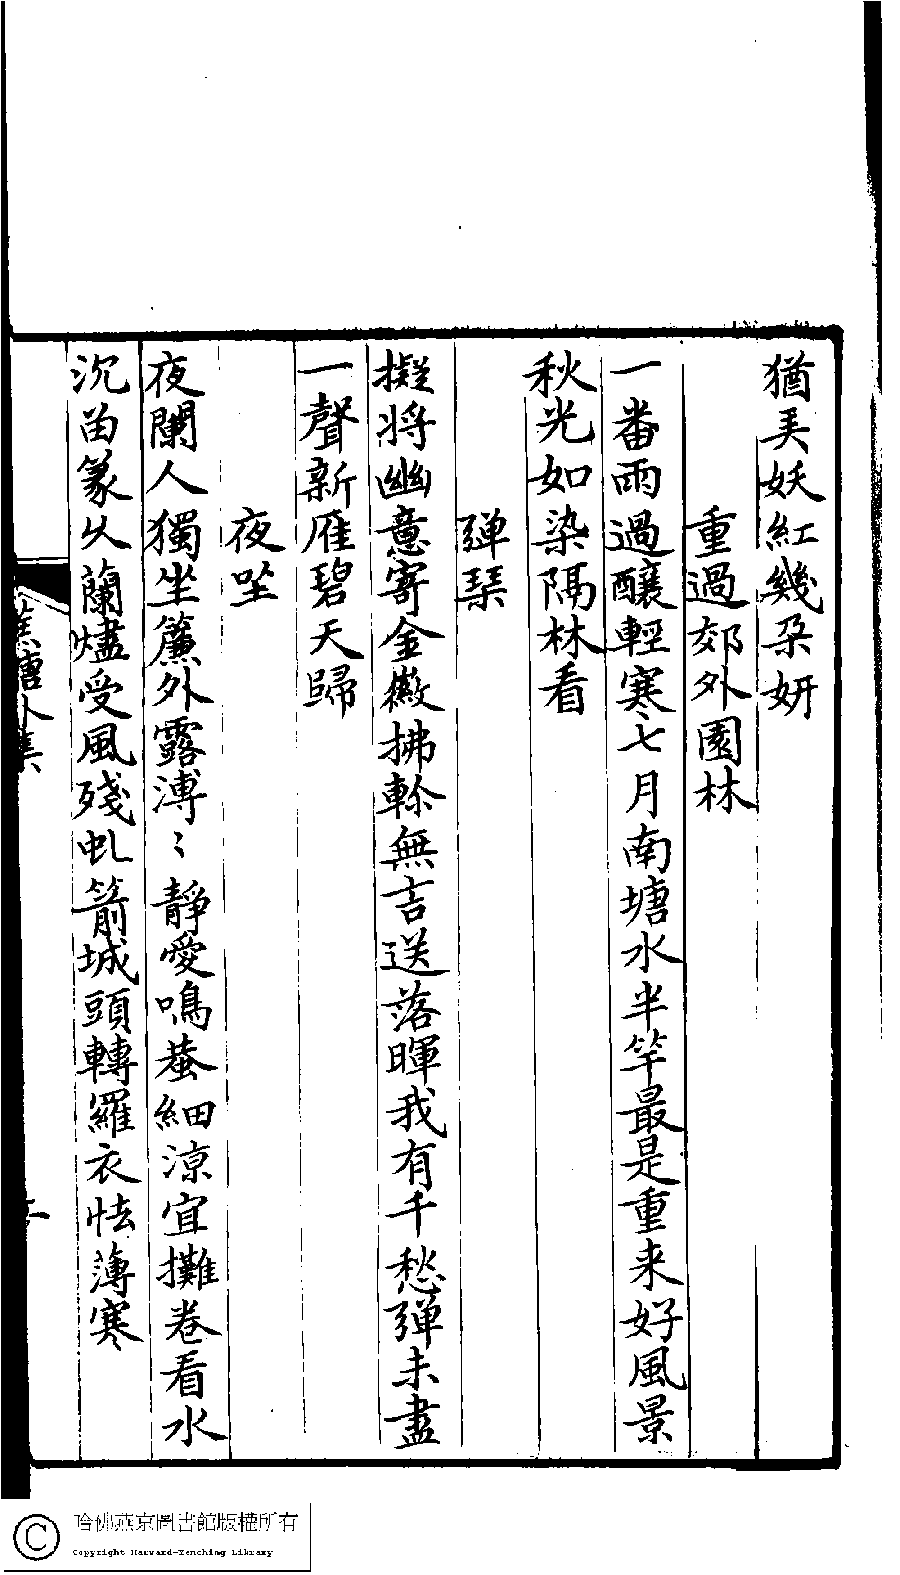 猶美妖紅幾朶妍
重過郊外園林
一番雨過釀輕寒七月南塘水半竿最是重来好風景
秋光如染隔林看
彈琹
擬将幽意寄金徽拂軫無言送落暉我有千愁彈未盡
一聲新雁碧天歸
夜坐
夜闌人獨坐簾外露漙〻靜愛鳴蛩細涼宜攤卷看水
沉留篆久蘭燼受風殘虬箭城頭轉羅衣怯薄寒
蕉塘外集
哈佛燕京圖書館版權所有
Copyright Harvard-Yenching Library